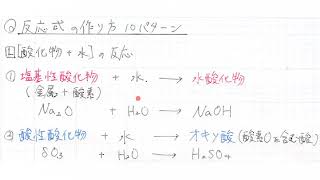 ◎反応式の作り方 10パターン
1 [酸化物+水]の反応
① 塩基性酸化物 + 水. → 水酸化物
(金属+酸素)
Na₂O + H₂O → NaOH
② 酸性酸化物 + 水 → オキソ酸(酸素Oを含む酸)
SO₃ + H₂O → H₂SO₄